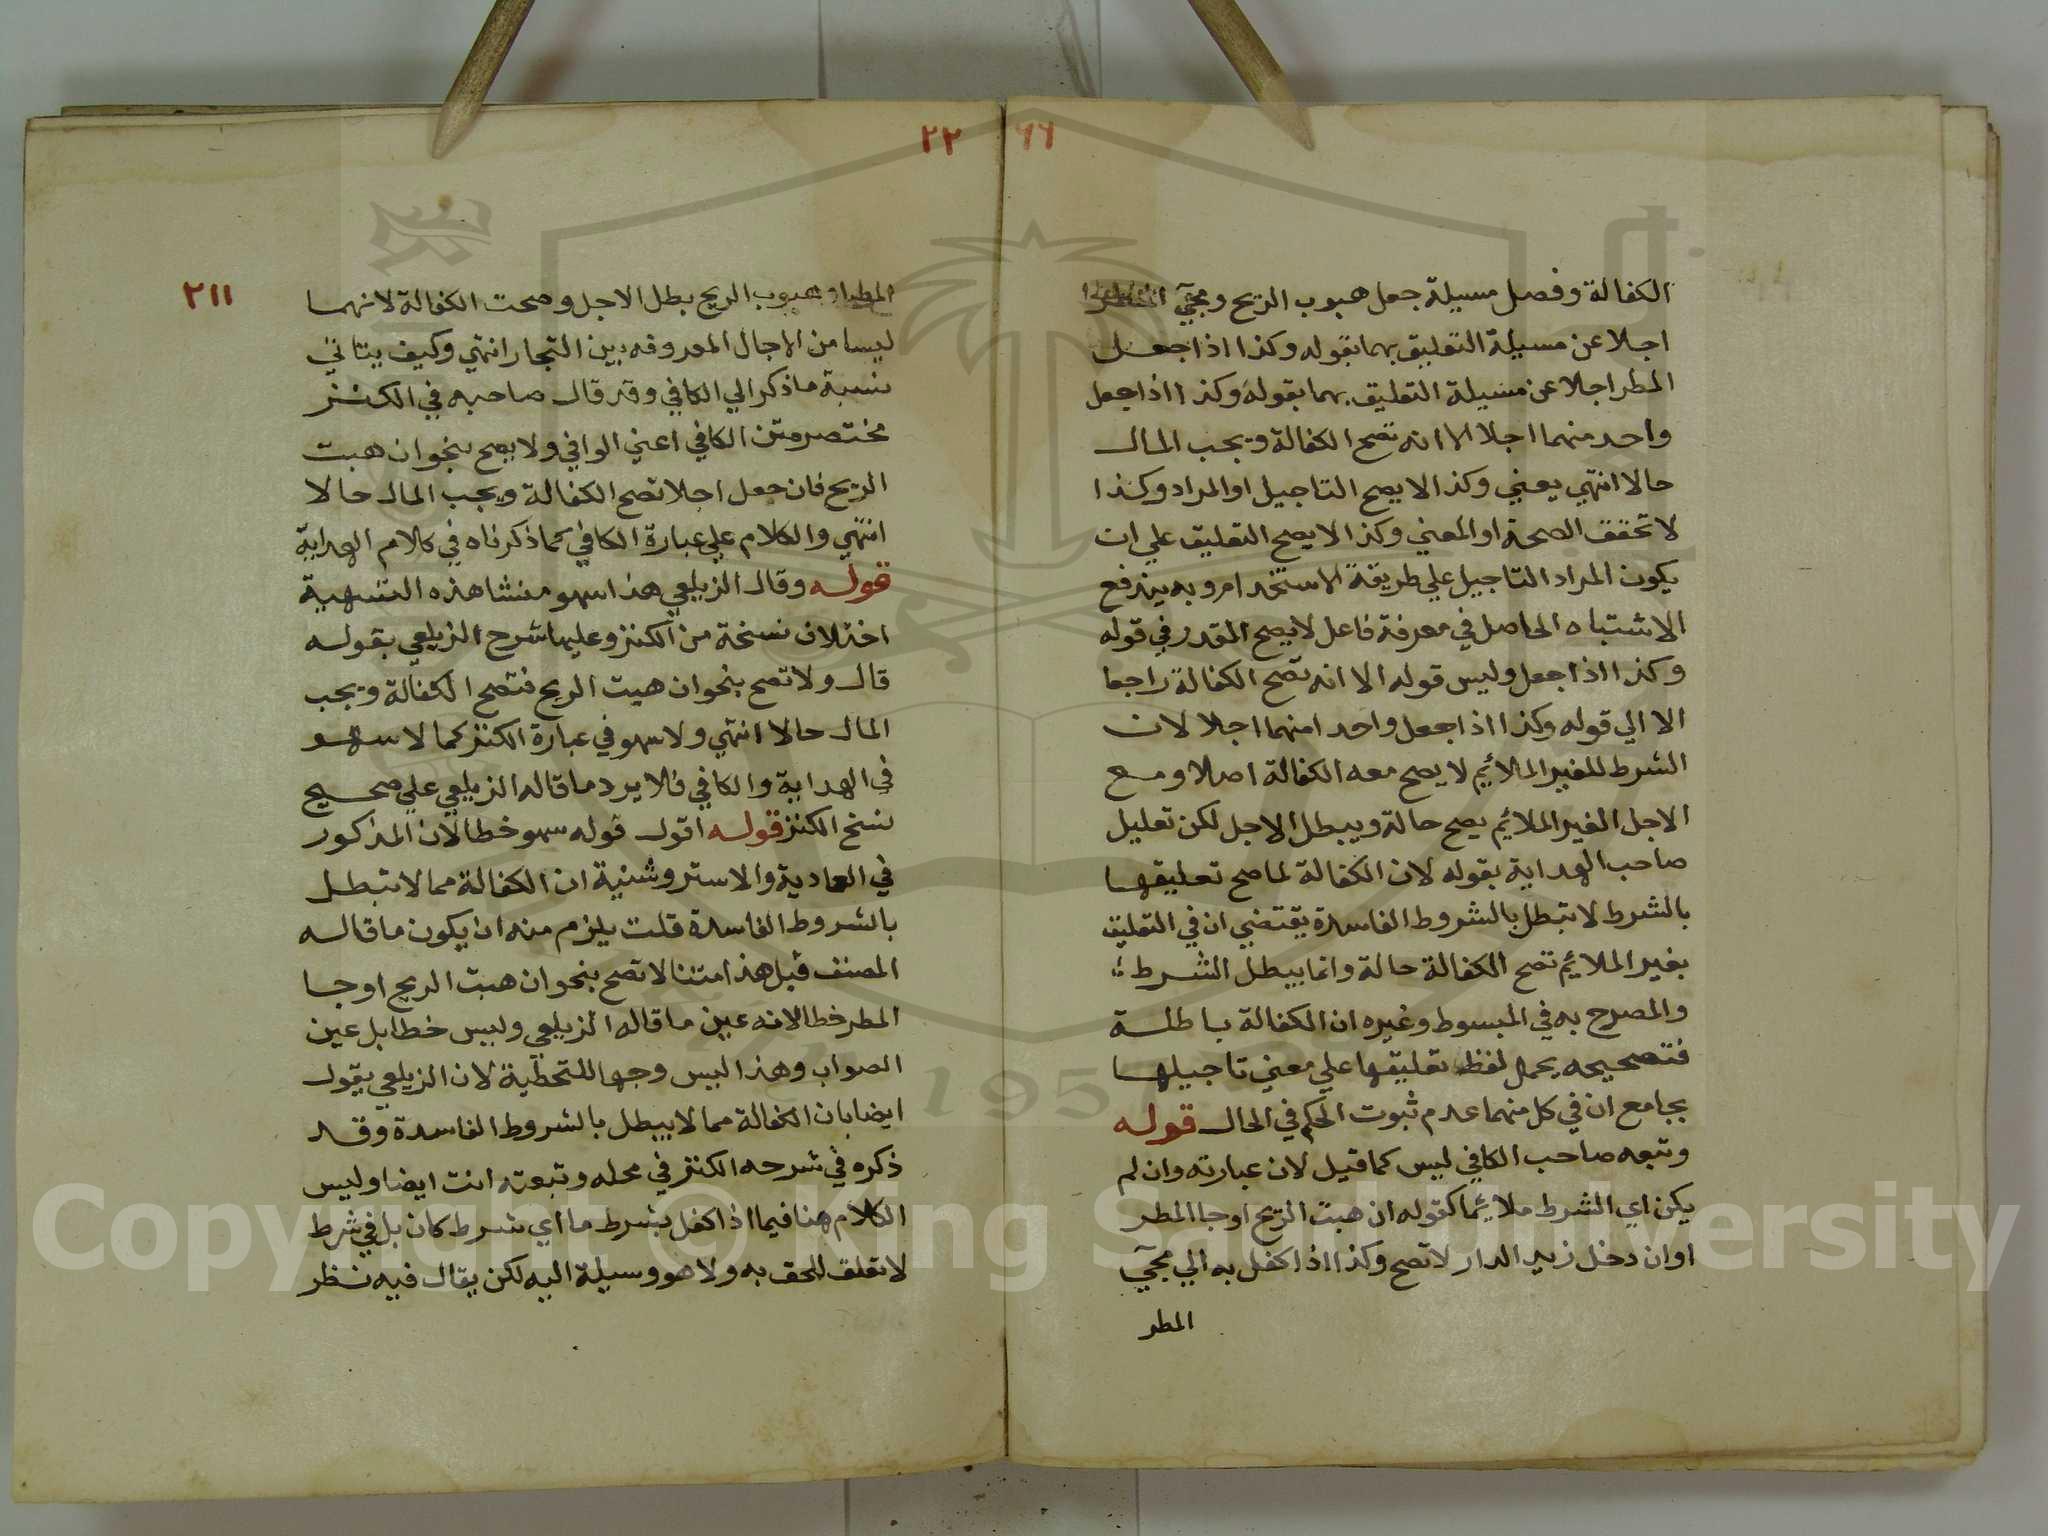 ٦٦
الكفالة وفصل مسيلة جعل هبوب الريح ومجيء المطر
اجلا عن مسيلة التعليق بهما بقوله وكذا اذا جعل
المطر اجلا عن مسيلة التعليق بهما بقوله وكذا اذا جعل
واحد منهما اجلا الا انه تصح الكفالة ويجب المال
حالا انتهي يعني وكذا لا يصح التاجيل او المراد وكذا
لا تحقق الصحة او المعني وكذا لا يصح التعليق علي ان
يكون المراد التاجيل علي طريقة الاستخدام وبه يندفع
الاشتباه الحاصل في معرفة فاعل لا يصح المقدر في قوله
وكذا اذا جعل وليس قوله الا انه تصح الكفالة راجعا
الا الي قوله وكذا اذا جعل واحدا منهما اجلا لان
الشرط للغير الملائيم لا يصح معه الكفالة اصلا ومع
الاجل الغير الملائيم يصح حالة ويبطل الاجل لكن تعليل
صاحب الهداية بقوله لان الكفالة لما صح تعليقها
بالشرط لا تبطل بالشروط الفاسدة يقتضي ان في التعليق
بغير الملائيم تصح الكفالة حالة وانما يبطل الشرط
والمصرح به في المبسوط وغيره ان الكفالة باطلة
فتصحيحه بحمل لفظ تعليقها علي معني تاجيلها
بجامع ان في كل منهما عدم ثبوت الحكم في الحال قوله
وتبعه صاحب الكافي ليس كما قيل لان عبارته وان لم
يكن اي الشرط ملائيما كقوله ان هبت الريح او جا المطر
او ان دخل زيد الدار لا تصح وكذا اذا كفل به الي مجيء
المطر
٢٢
٢١١
المطر او هبوب الريح بطل الاجل وصحت الكفالة لانهما
ليسا من الاجال المعروفه بين التجار انتهي وكيف يتاتي
نسبة ما ذكر الي الكافي وقد قال صاحبه في الكنز
مختصر متن الكافي اعني الوافي ولا يصح بنحو ان هبت
الريح فان جعل اجلا تصح الكفالة ويجب المال حالا
انتهي والكلام علي عبارة الكافي كما ذكرناه في كلام الهداية
قوله وقال الزيلعي هذا سهو منشا هذه التسهية
اختلاف نسخة من الكنز وعليها شرح الزيلعي بقوله
قال ولا تصح بنحو ان هبت الريح فتصح الكفالة ويجب
المال حالا انتهي ولا سهو في عبارة الكنز كما لا سهو
في الهداية والكافي فلا يرد ما قاله الزيلعي علي صحيح
نسخ الكنز قوله اقول قوله سهو خطا لان المذكور
في العمادية والاستروشنية ان الكفالة مما لا تبطل
بالشروط الفاسدة قلت يلزم منه ان يكون ما قاله
المصنف قبل هذا متنا لا تصح بنحو ان هبت الريح او جا
المطر خطا لانه عين ما قاله الزيلعي وليس خطا بل عين
الصواب وهذا ليس وجها للتخطية لان الزيلعي يقول
ايضا بان الكفالة مما لا يبطل بالشروط الفاسدة وقد
ذكره في شرحه الكنز في محله وتبعته انت ايضا وليس
الكلام هنا فيما اذا كفل بشرط ما اي شرط كان بل في شرط
لا تعلق للحق به ولا هو وسيلة اليه لكن يقال فيه نظر
Copyright © King Saud University
1957